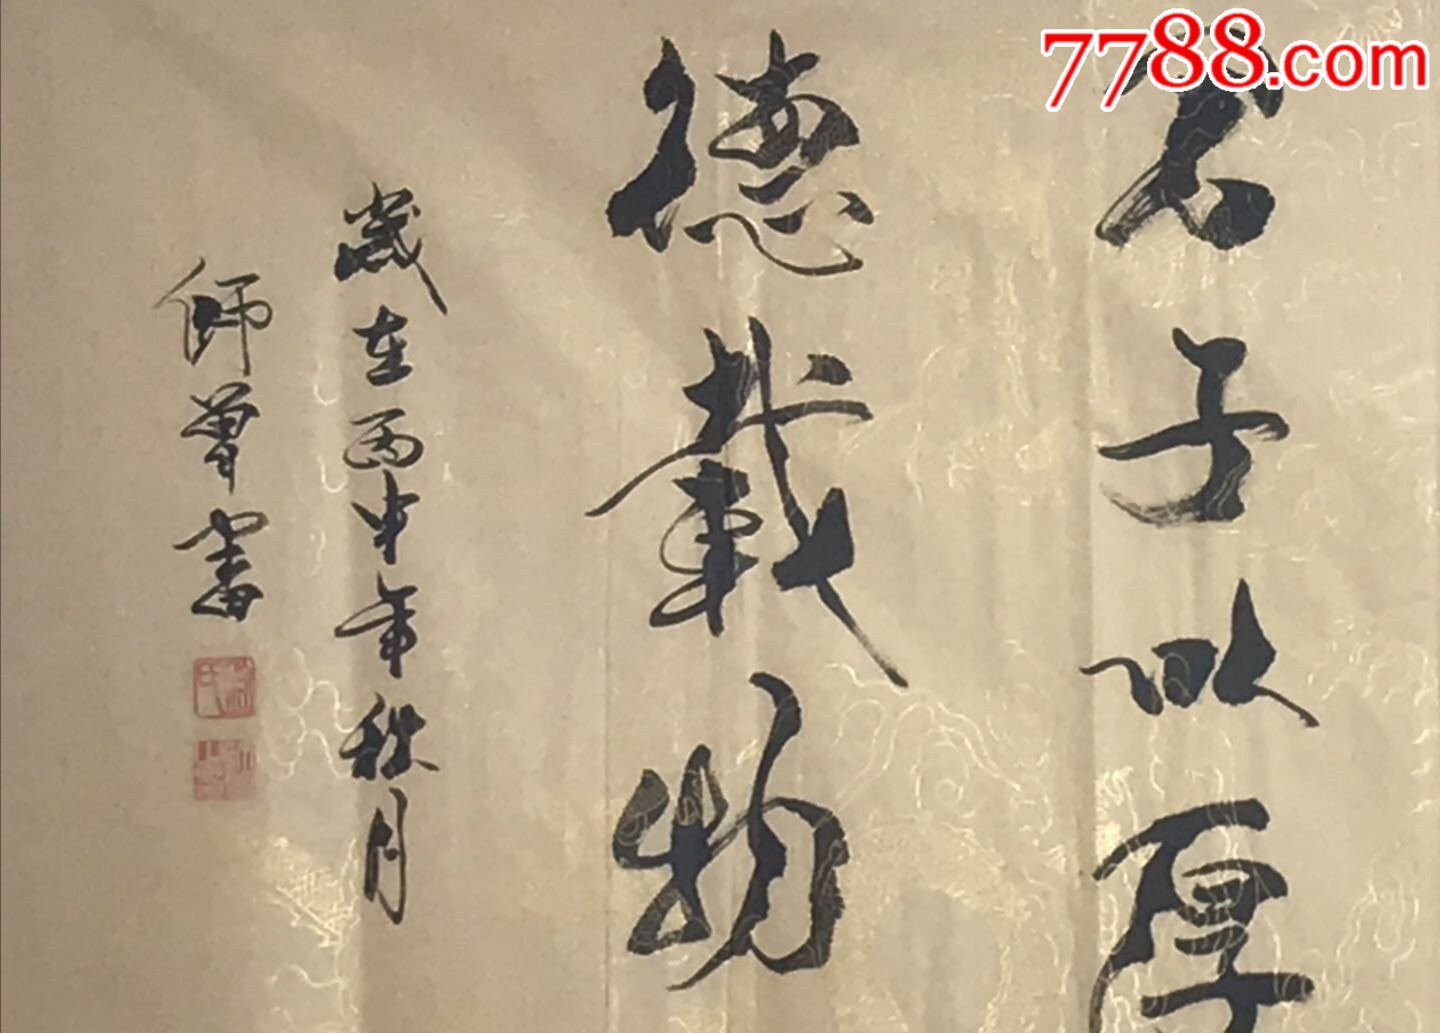 7788.com
君子以厚
德載物
歲在丙申年秋月
師曾書